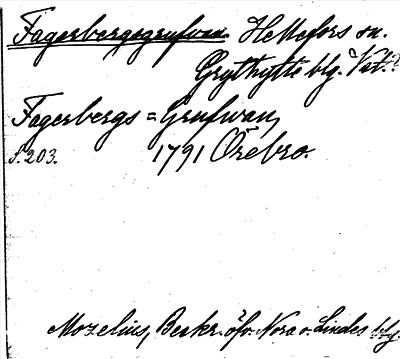 Fagerbergsgrufvan. Hellefors sn.
Grythytte blg. Vst.?
Fagerbergs = Grufwan,
s. 203. 1791 Örebro.
Mozelius, Beskr. öfv. Nora o. Lindes blg.